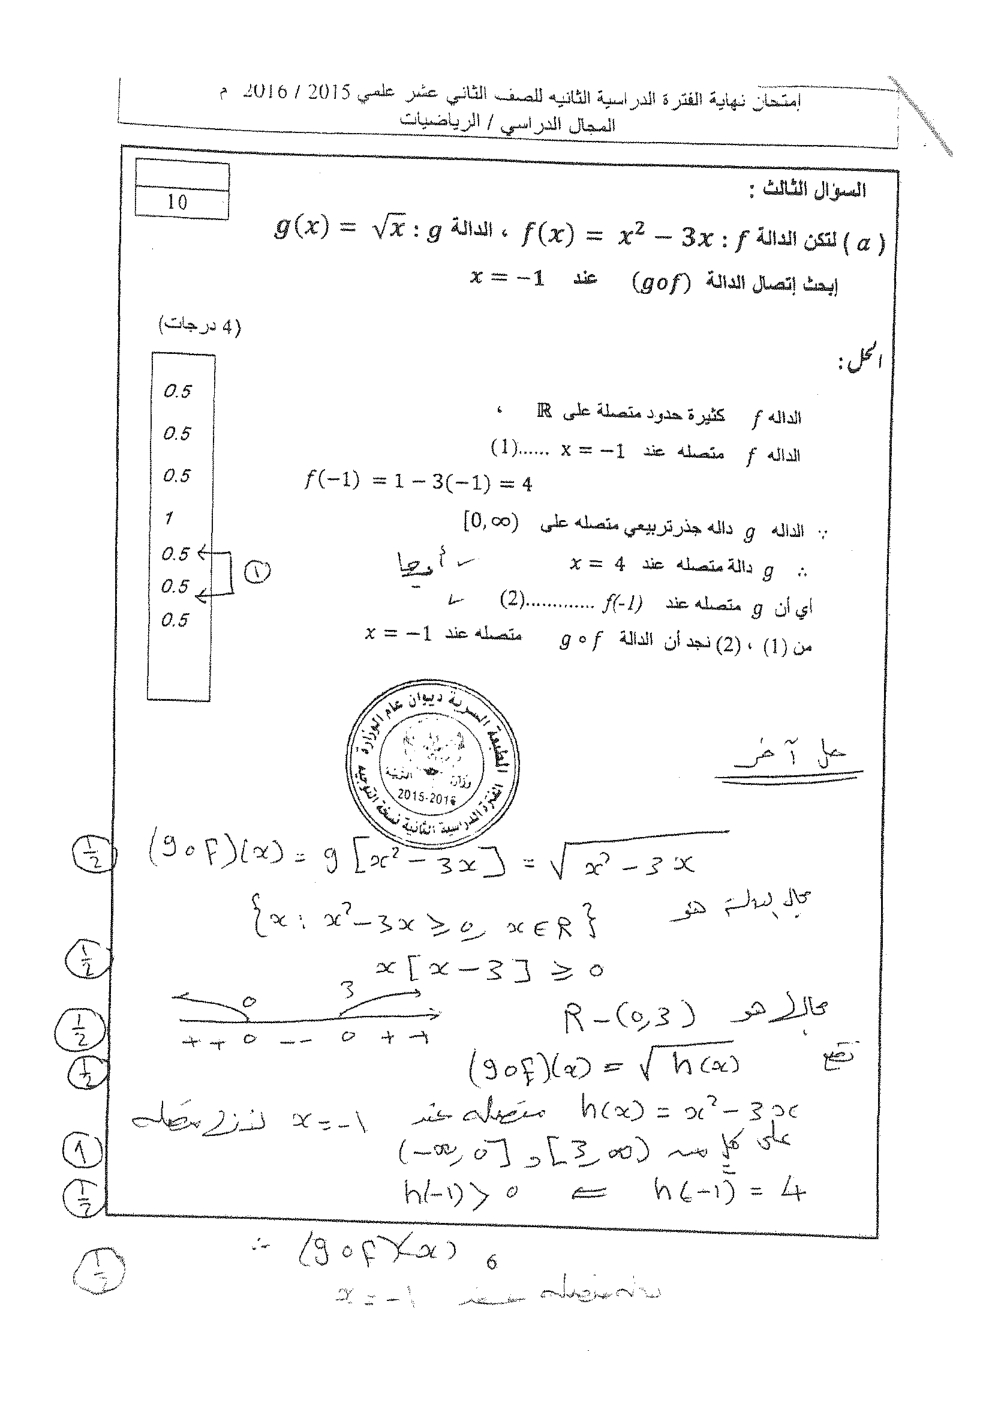 إمتحان نهاية الفترة الدراسية الثانيه للصف الثاني عشر علمي 2015 / 2016 م
المجال الدراسي / الرياضيات
السؤال الثالث :
10
( a ) لتكن الدالة f : f(x) = x² − 3x ، الدالة g : g(x) = √x
إبحث إتصال الدالة (gof) عند x = −1
(4 درجات)
الحل :
0.5
الداله f كثيرة حدود متصلة على ℝ ،
0.5
الداله f متصله عند x = −1 ......(1)
0.5
f(−1) = 1 − 3(−1) = 4
1
∵ الداله g داله جذرتربيعي متصله على [0, ∞)
0.5
∴ g دالة متصله عند x = 4
أو وجها
0.5
①
أي أن g متصله عند f(-1) .............(2)
0.5
من (1) ، (2) نجد أن الدالة g ∘ f متصله عند x = −1
الطبعة السرية ديوان عام الوزارة
وزارة التربية
2015-2016
الفترة الدراسية الثانية نسخة التوجيه
حل آخر
½ (g∘f)(x) = g[x² − 3x] = √x² − 3x
مجال الدالة هو {x : x² − 3x ≥ 0, x ∈ R}
½ x[x − 3] ≥ 0
0 3
مجالها هو R − (0,3)
½ + + 0 − − 0 + +
½ نضع (g∘f)(x) = √h(x)
h(x) = x² − 3x متصله عند x = −1 لأنها متصله
1 على كل من (−∞, 0] و [3, ∞)
½ h(−1) = 4 ⇐ h(−1) > 0
½ ∴ (g∘f)(x)
6
دالة متصله عند x = −1